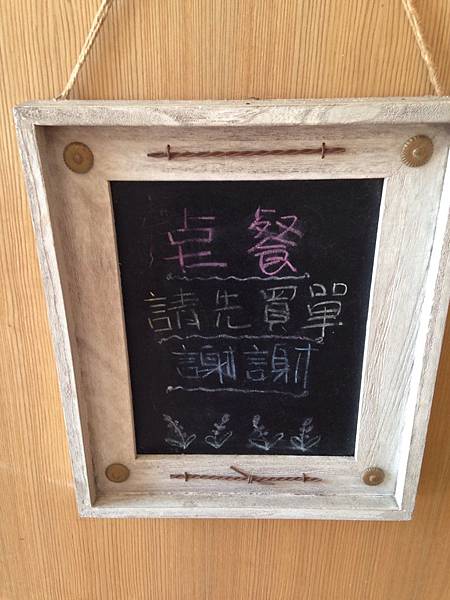 点餐
請先買單
謝謝